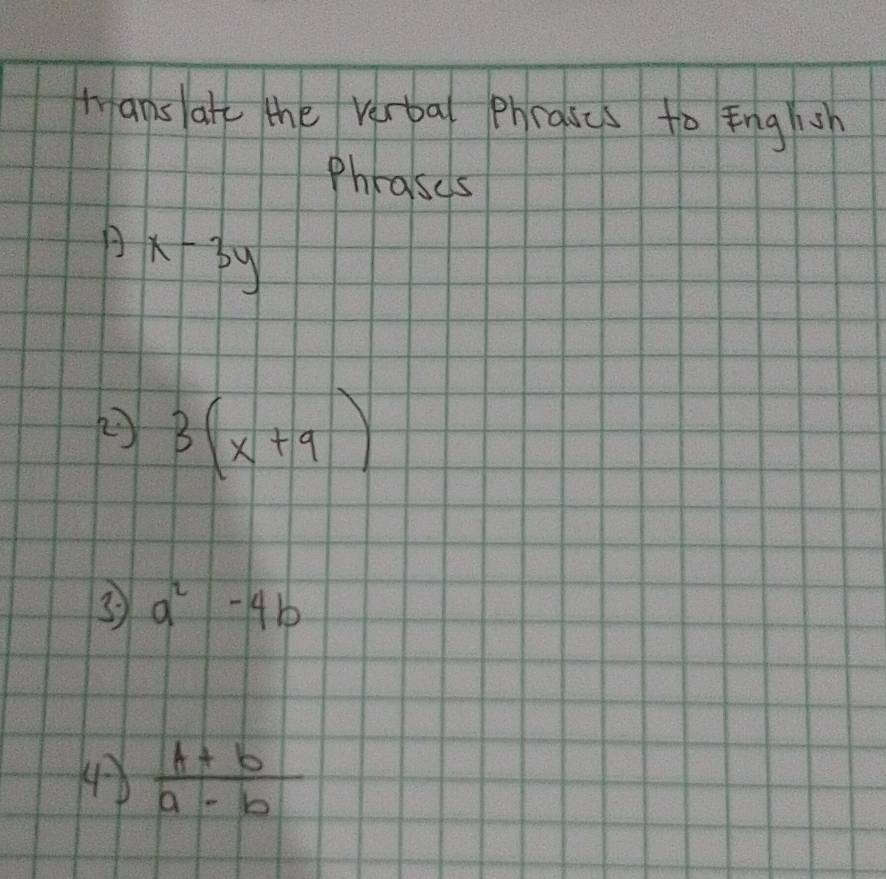 translate the verbal Phrases to English
Phrases
1) x - 3y
2.) 3(x + 9)
3.) a² - 4b
4.) A + b
a - b